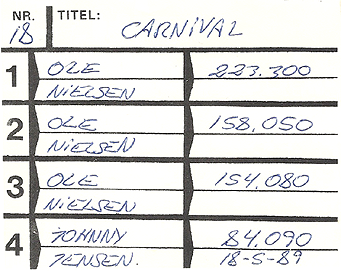 NR. TITEL:
18 CARNIVAL
1 OLE 223.300
NIELSEN
2 OLE 158.050
NIELSEN
3 OLE 154.080
NIELSEN
4 JOHNNY 84.090
JENSEN. 18-5-89